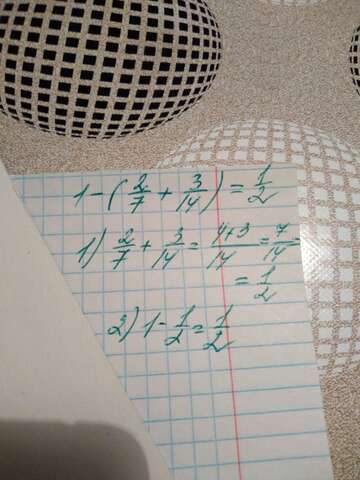 1-(2/7+3/14)=1/2
1) 2/7+3/14=4+3/14=7/14=
=1/2
2) 1-1/2=1/2